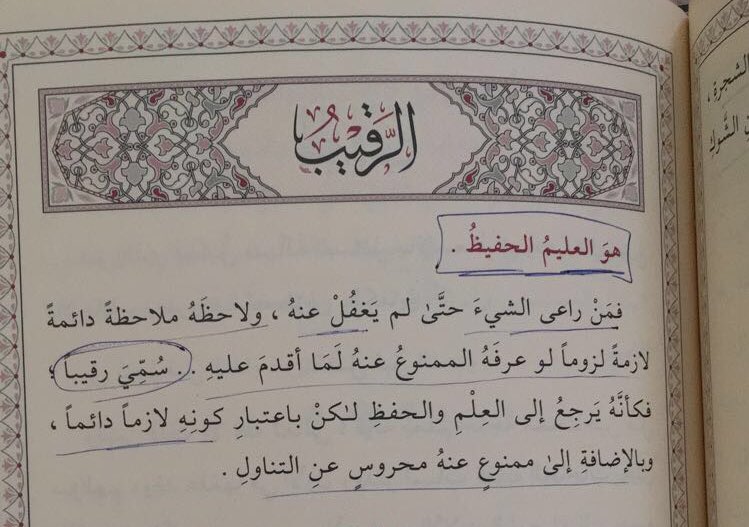 الرَّقيبُ
هوَ العليمُ الحفيظُ .
فمَنْ راعى الشيءَ حتَّىٰ لم يَغفُلْ عنهُ ، ولاحظَهُ ملاحظةً دائمةً
لازمةً لزوماً لو عرفَهُ الممنوعُ عنهُ لَمَا أقدمَ عليهِ . . سُمِّيَ رقيباً ؛
فكأنَّهُ يَرجِعُ إلى العِلْمِ والحفظِ لـٰكنْ باعتبارِ كونِهِ لازماً دائماً ،
وبالإضافةِ إلىٰ ممنوعٍ عنهُ محروسٍ عنِ التناولِ .
الشجرة ،
الشَّوك